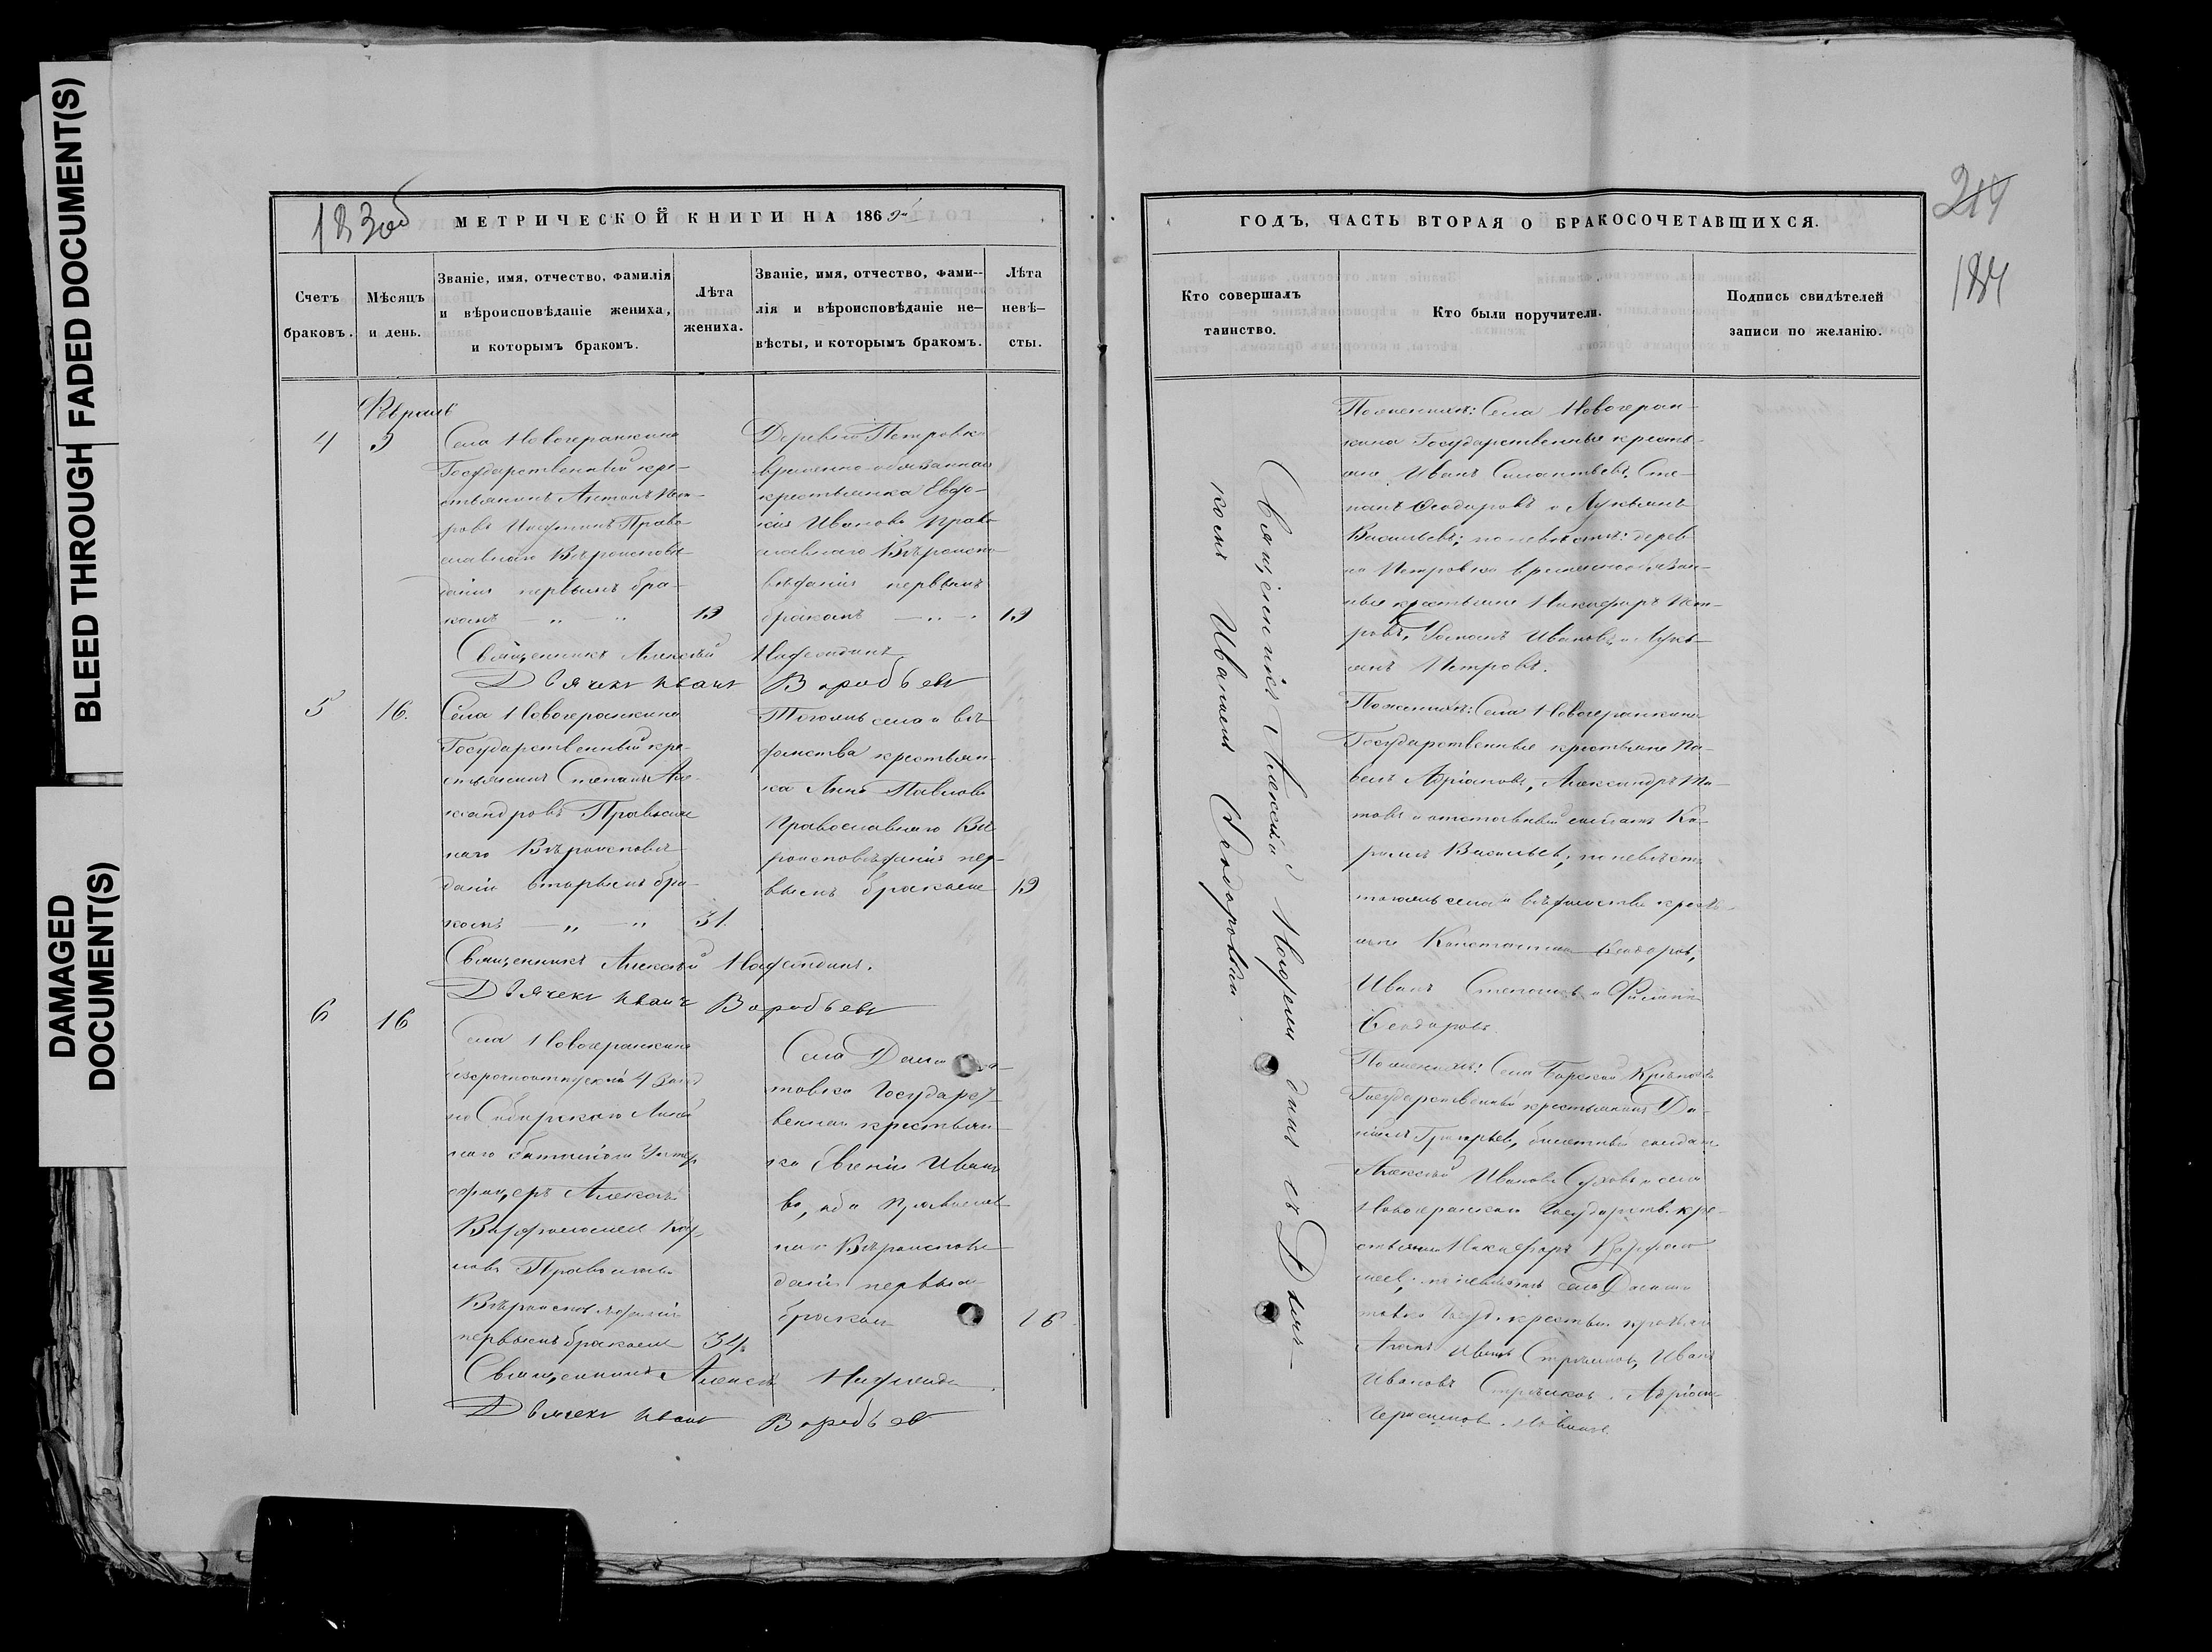 BLEED THROUGH FADED DOCUMENT(S)
DAMAGED
DOCUMENT(S)
183об
МЕТРИЧЕСКОЙ КНИГИ НА 1869й
Счетъ
браковъ.
Мѣсяцъ
и день.
Званіе, имя, отчество, фамилія
и вѣроисповѣданіе жениха,
и которымъ бракомъ.
Лѣта
жениха.
Званіе, имя, отчество, фами--
лія и вѣроисповѣданіе не--
вѣсты, и которымъ бракомъ.
Лѣта
невѣ--
сты.
Февраль
4
9
Села
Государственный кре-
стьянинъ Антонъ Пет-
ровъ Право
славнаго Вѣроисповѣ
данія первымъ бра-
комъ — „ — „
19
Деревни Петровки
временно-обязанная
крестьянка Евдо-
кія Иванова Право
славнаго Вѣроиспо
вѣданія первымъ
бракомъ — „ —
19
Священникъ Алексѣй
Дьячекъ Иванъ Воробьевъ
5
16.
Села
Государственный кре-
стьянинъ Степанъ Але-
ксандровъ Православ
наго Вѣроисповѣ
данія вторымъ бра-
комъ — „ — „
31.
Тогожъ села и вѣ-
домства крестьян-
ка Анна Павлова
Православнаго Вѣ
роисповѣданія пер-
вымъ бракомъ
19
Священникъ Алексѣй
Дьячекъ Иванъ Воробьевъ
6
16
Села
Сибирскаго Линей
наго баталіона Унтер
офицеръ Алексѣй
Варфоломеев
Православн
Вѣроисповѣданія
первымъ бракомъ
34.
Села
товка Государст-
венная крестьян-
ка Евгенія Ивано
ва, оба Православ
наго Вѣроисповѣ
данія первымъ
бракомъ
16
Священникъ Алексѣй
Дьячекъ Иванъ Воробьев
ГОДЪ, ЧАСТЬ ВТОРАЯ О БРАКОСОЧЕТАВШИХСЯ.
214
184
Кто совершалъ
таинство.
Кто были поручители.
Подпись свидѣтелей
записи по желанію.
Священникъ Алексѣй съ Дьяч-
комъ Иваномъ
По женихѣ: Села
Государственные кресть-
яне Иванъ Сте-
панъ Ѳеодоровъ и Лукьянъ
Васильевъ; по невѣстѣ: дерев
ни Петровки временнообязан-
ные крестьяне Никифоръ Пет-
ровъ, Романъ Ивановъ и Лукь-
янъ Петровъ.
По женихѣ: Села
Государственные крестьяне Па-
велъ Адріановъ, Александръ Ти-
товъ и отставный солдатъ Ка-
Васильев, по невѣстѣ
тогожъ села и вѣдомства кресть-
яне Константинъ Ѳеодоров,
Иванъ Степановъ и Филиппъ
Ѳеодоровъ.
По женихѣ: Села Борской Крѣпости
Государственный крестьянинъ Да-
ніилъ Григорьев, билетный солдатъ
Алексѣй Ивановъ и села
Государств. кре-
стьянинъ Никифоръ Варфоло
меев; по невѣстѣ села
товка Госуд. крестьяне
Иванъ
Ивановъ Адріанъ
Герасимовъ